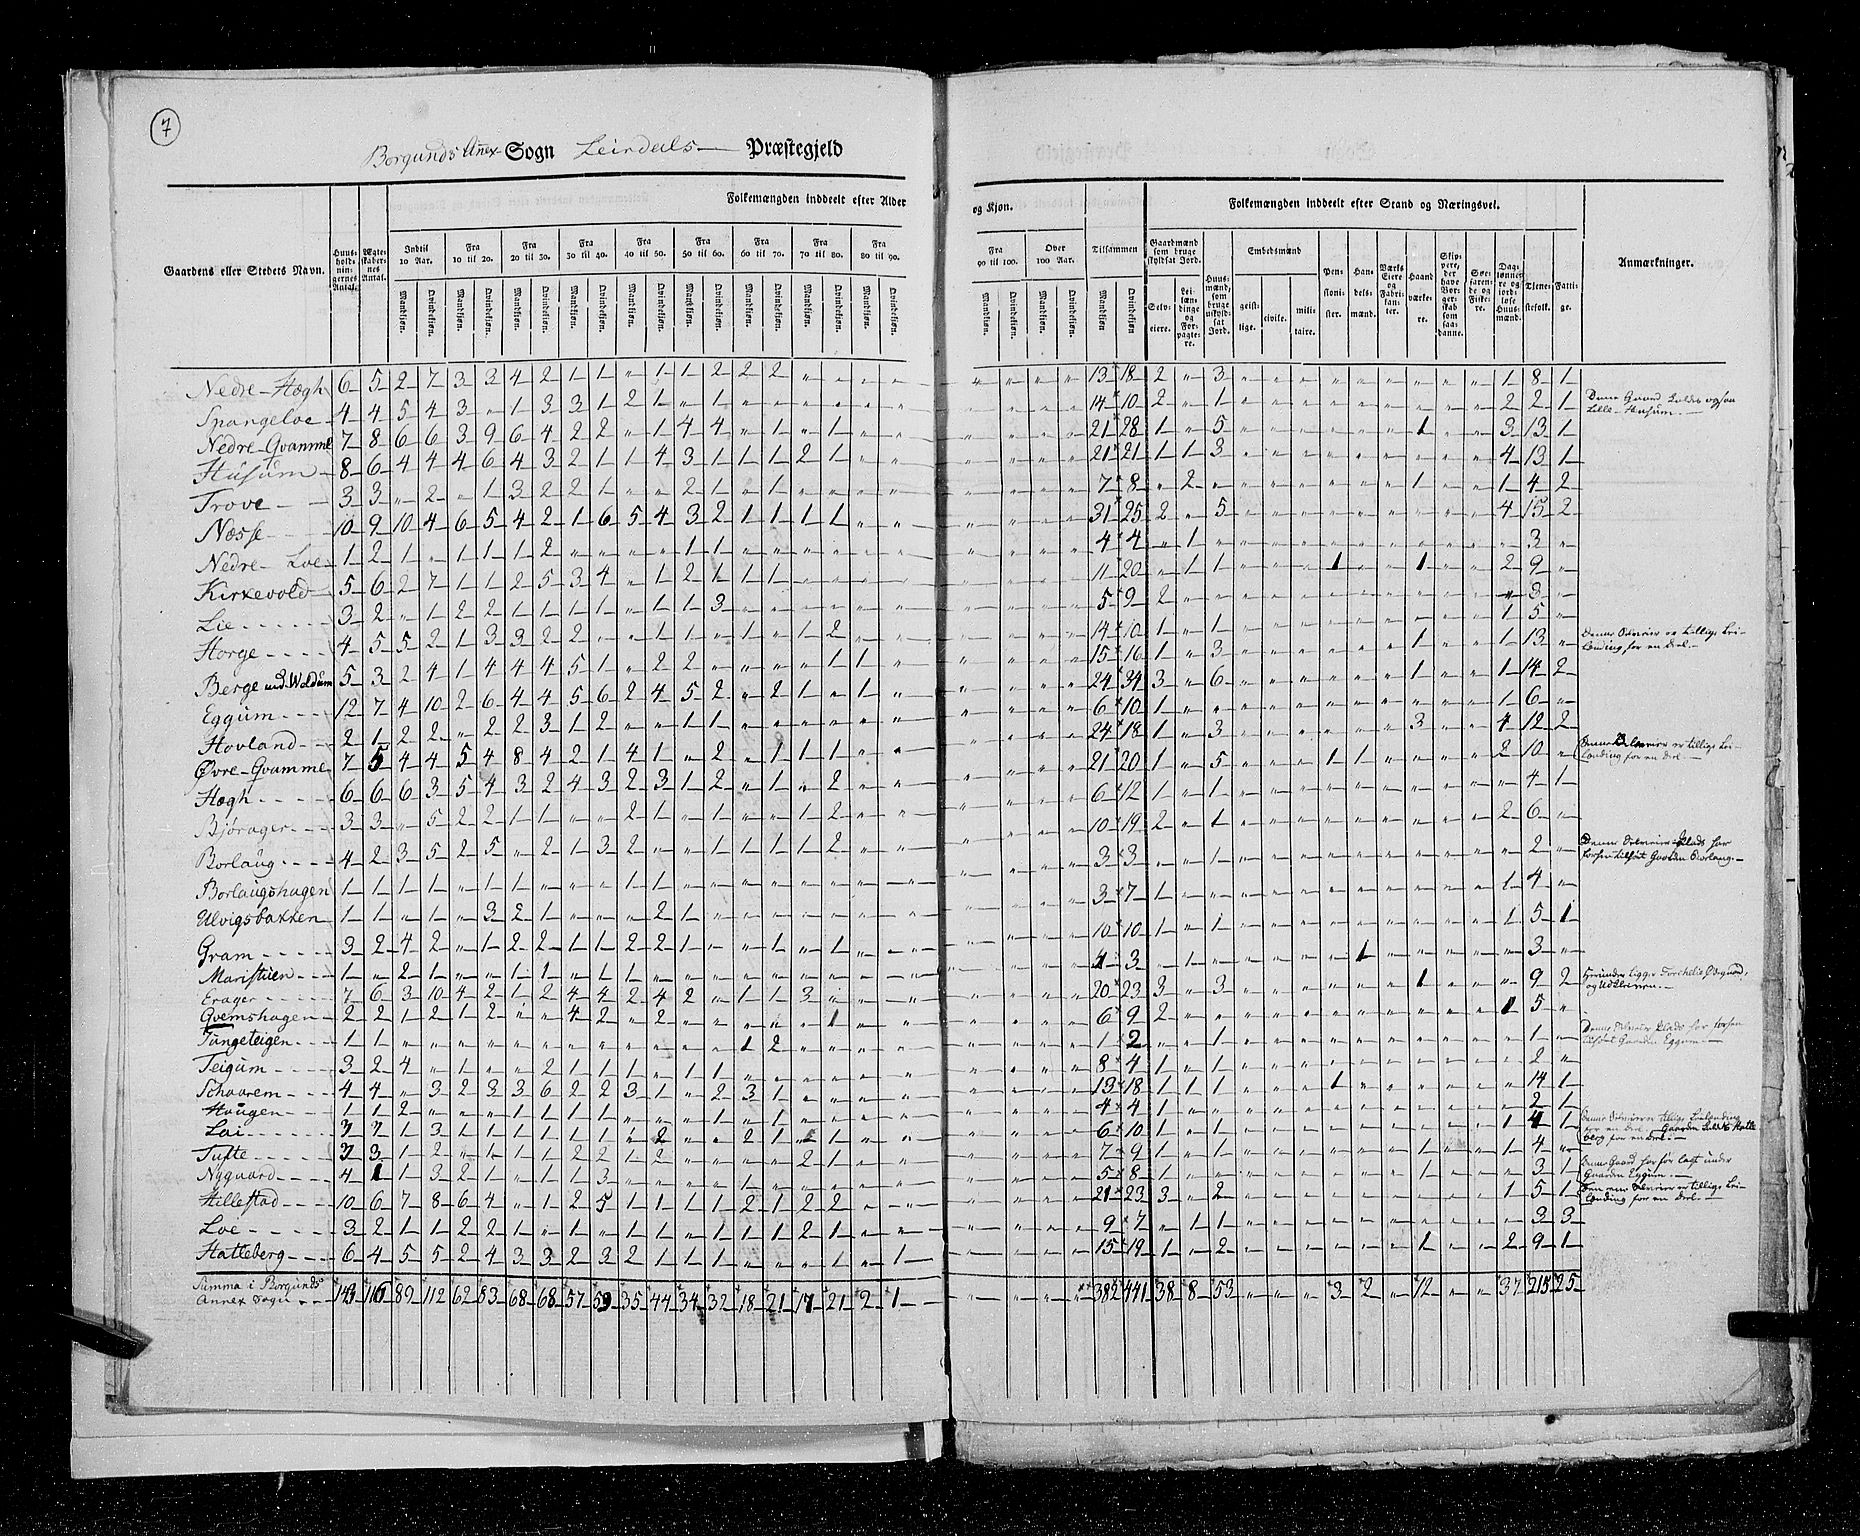 7
Borgunds Anex Sogn Leirdals Præstegjeld
Folkemængden inddeelt efter Alder og Kjøn.
Folkemængden inddeelt efter Stand og Næringsvei.
Gaardens eller Stedets Navn.
Huus-holdnin-gernes Antal.
Ægte-skaber-nes Antal.
Indtil 10 Aar.
Fra 10 til 20.
Fra 20 til 30.
Fra 30 til 40.
Fra 40 til 50.
Fra 50 til 60.
Fra 60 til 70.
Fra 70 til 80.
Fra 80 til 90.
Fra 90 til 100.
Over 100 Aar.
Tilsammen
Mandkjøn. Qvindekjøn.
Gaardmænd som bruge skyldsat Jord.
Selv-eiere.
Lei-læn-dinge og For-pagte-re.
Huus-mænd, som bruge uskyld-sat Jord.
Embedsmænd
geist-lige. civile. mili-taire.
Pen-sioni-ster.
Han-dels-mænd.
Værks Eiere og Fabri-kan-ter.
Haand-værke-re.
Skip-pere, der have Bor-ger-skab som saa-danne.
Søe-farende og Fiske-re.
Dag-lønne-re og jord-løse Huus-mænd.
Tjene-stefolk.
Fatti-ge.
Anmærkninger.
Nedre-Hægh 6 5 2 7 3 3 4 2 1 1 „ 1 1 2 2 2 „ „ „ „ „ „ „ „ 13 18 2 „ 3 „ „ „ „ „ „ „ „ „ 1 8 1
Spangeloe 4 4 5 4 3 „ 1 3 3 1 2 1 „ 1 „ „ „ „ „ „ „ „ „ „ 14 10 2 „ 1 „ „ „ „ „ „ „ „ „ 2 2 1
Denne Gaard kaldes ogsaa Lille-Husum.
Nedre-Qvamme 7 8 6 6 3 9 6 4 2 2 „ 1 4 4 „ 1 „ 1 „ „ „ „ „ „ 21 28 1 „ 5 „ „ „ „ „ „ 1 „ „ 3 13 1
Husum 8 6 4 4 4 6 4 3 2 1 1 4 3 1 1 1 2 1 „ „ „ „ „ „ 21 21 1 1 3 „ „ „ „ „ „ „ „ „ 4 13 1
Trove 3 3 „ 2 „ 1 3 2 2 1 „ „ 2 1 „ 1 „ „ „ „ „ „ „ „ 7 8 „ 2 „ „ „ „ „ „ „ 1 „ „ 1 4 2
Næsse 10 9 10 4 6 5 4 2 1 6 5 4 3 2 1 1 1 1 „ „ „ „ „ „ 31 25 2 „ 5 „ „ „ „ „ „ „ „ „ 4 15 2
Nedre-Loe 1 2 1 „ 1 1 1 2 „ „ „ „ 1 1 „ „ „ „ „ „ „ „ „ „ 4 4 „ 1 „ „ „ „ „ „ „ „ „ „ „ 3 „
Kirkevold 5 6 2 7 1 1 2 5 3 4 „ 1 2 1 1 1 „ „ „ „ „ „ „ „ 11 20 „ 1 1 „ „ „ 1 „ „ 1 „ „ 2 9 „
Lie 3 2 „ 1 2 2 1 1 1 1 „ 1 1 3 „ „ „ „ „ „ „ „ „ „ 5 9 2 „ „ „ „ „ „ „ „ „ „ „ „ 3 „
Horge 4 5 5 2 1 3 3 2 2 „ „ 1 1 „ 1 „ 1 2 „ „ „ „ „ „ 14 10 1 „ 1 „ „ „ „ „ „ „ „ „ 1 5 „
Berge med Woldum 5 3 2 4 1 4 4 4 5 1 „ 2 2 „ „ „ 1 1 „ „ „ „ „ „ 15 16 1 „ 3 „ „ „ „ „ „ 1 „ „ 1 13 „
Denne Selveier er tillige Lei-lænding for en Deel.
Eggum 12 7 4 10 2 6 4 4 5 6 2 4 5 2 „ 2 1 „ 1 „ „ „ „ „ 24 34 3 „ 6 „ „ „ „ „ „ 1 „ „ 1 14 2
Hovland 2 1 2 2 „ 2 2 3 1 2 „ „ 1 1 „ „ „ „ „ „ „ „ „ „ 6 10 1 „ „ „ „ „ „ „ „ „ „ „ 1 6 „
Øvre-Qvamme 7 5 4 4 5 4 8 4 2 1 4 1 „ 2 „ 1 1 1 „ „ „ „ „ „ 24 18 1 „ 3 „ „ „ „ „ „ 3 „ „ 4 12 2
Hægh 6 6 6 3 5 4 3 2 4 3 2 3 1 2 „ 1 „ 2 „ „ „ „ „ „ 21 20 1 „ 5 „ „ „ 1 1 „ „ „ „ 2 10 „
Denne Selveier er tillige Lei-lænding for en Deel.
Bjørager 3 3 „ 5 2 2 1 1 „ „ 2 1 „ 1 „ „ 1 2 „ „ „ „ „ „ 6 12 1 „ 1 „ „ „ „ „ „ „ „ „ „ 4 1
Borlaug 4 2 3 5 2 5 „ 2 1 3 2 „ „ 1 1 1 1 2 „ „ „ „ „ „ 10 19 2 „ 1 „ „ „ „ „ „ „ „ „ 2 6 „
Borlaugshagen 1 1 1 1 1 1 „ „ „ „ 1 1 „ „ „ „ „ „ „ „ „ „ „ „ 3 3 1 „ „ „ „ „ „ „ „ „ „ „ „ 2 „
Denne Selveier-Plads har forhen tilhørt Gaarden Borlaug.
Ulvigsbakken 1 1 „ 1 „ 3 2 1 „ „ „ 2 1 „ „ „ „ „ „ „ „ „ „ „ 3 7 1 „ „ „ „ „ „ „ „ „ „ „ 1 4 „
Gram 3 2 4 2 „ 1 2 2 1 1 2 2 1 „ „ 1 „ 1 „ „ „ „ „ „ 10 10 1 „ 1 „ „ „ „ „ „ „ „ „ 1 5 1
Maristuen 1 „ 2 1 „ „ 1 1 „ 1 1 „ „ „ „ „ „ „ „ „ „ „ „ „ 4 3 „ 1 „ „ „ „ „ 1 „ „ „ „ „ 3 „
Erager 7 6 3 10 4 2 1 2 4 4 2 4 2 „ 1 1 3 „ „ „ „ „ „ „ 20 23 3 „ 3 „ „ „ „ „ „ 1 „ „ „ 9 2
Qvemshagen 2 2 1 2 1 2 „ „ 4 2 „ 2 „ „ „ „ „ 1 „ „ „ „ „ „ 6 9 2 „ „ „ „ „ „ „ „ „ „ „ 1 5 „
Tungeteigen 1 1 „ „ „ „ „ „ „ „ „ „ „ „ 1 2 „ „ „ „ „ „ „ „ 1 2 „ „ 1 „ „ „ „ „ „ „ „ „ „ 1 „
Teigum 3 2 4 „ 1 „ „ 2 1 1 1 „ 1 1 „ „ „ „ „ „ „ „ „ „ 8 4 1 „ 1 „ „ „ „ „ „ „ „ „ „ 2 „
Schaarem 4 4 „ 3 2 3 3 6 2 2 3 1 „ 2 3 1 „ „ „ „ „ „ „ „ 13 18 1 1 1 „ „ „ 1 „ „ „ „ „ „ 14 1
Haugen 1 1 2 „ „ „ 1 1 1 1 „ „ „ 1 „ „ „ 1 „ „ „ „ „ „ 4 4 1 „ „ „ „ „ „ „ „ „ „ „ „ 2 1
Lai 3 3 1 3 1 1 1 1 1 1 „ 2 „ „ 2 1 „ 1 „ „ „ „ „ „ 6 10 1 „ 1 „ „ „ „ „ „ „ „ „ 1 4 1
Tufte 3 3 1 2 „ 1 1 1 2 2 1 2 „ „ „ „ 2 1 „ „ „ „ „ „ 7 9 1 „ 1 „ „ „ „ „ „ 1 „ „ 1 4 „
Nygaard 4 1 1 3 2 1 „ 1 1 3 „ „ „ „ 1 „ „ „ „ „ „ „ „ „ 5 8 1 „ „ „ „ „ „ „ „ 1 „ „ „ 3 1
Hillestad 10 6 7 8 6 4 „ 1 2 5 1 1 1 1 2 1 2 2 „ „ „ „ „ „ 21 23 3 „ 2 „ „ „ „ „ „ „ „ „ 1 5 1
Loe 3 2 1 1 2 2 1 „ 1 „ 1 1 1 1 1 1 2 1 „ „ „ „ „ „ 9 7 „ 1 1 „ „ „ „ „ „ „ „ „ „ 3 3
Hatteberg 6 4 5 5 2 4 3 3 2 3 2 1 1 1 „ „ „ 1 „ 1 „ „ „ „ 15 19 1 „ 2 „ „ „ „ „ „ 1 „ „ 2 9 1
Summa i Borgunds
Annex Sogn 143 116 89 112 62 83 68 68 57 59 35 44 34 32 18 21 17 21 2 1 „ „ „ „ 382 441 38 8 53 „ „ „ 3 2 „ 12 „ „ 37 215 25